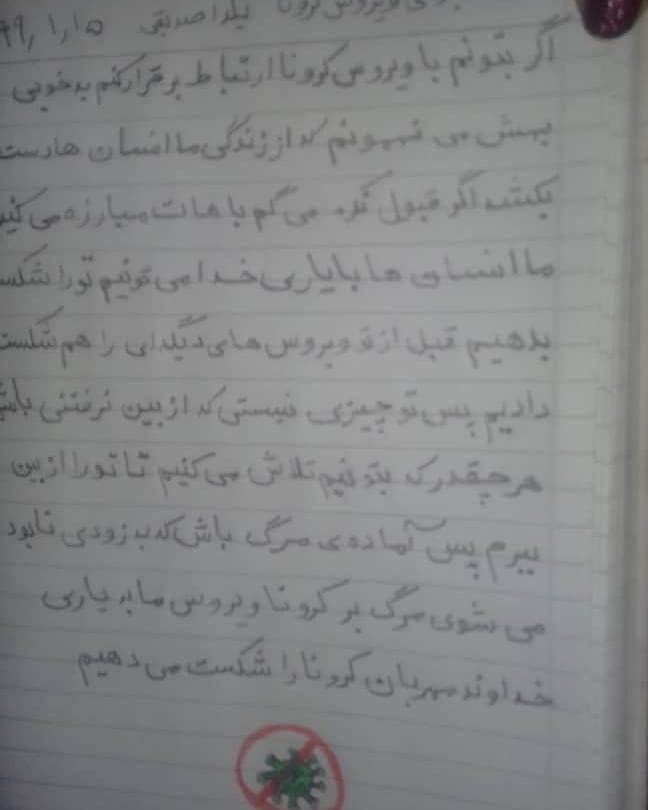 ویروس کرونا یلدا صدیقی ۹۹/۱/۱۵
اگر بتونم با ویروس کرونا ارتباط برقرار کنم به خوبی
بهش می فهمونم که از زندگی ما انسان ها دست
بکشد اگر قبول نکرد می گم باهات مبارزه می کنیم
ما انسان ها با یاری خدا می تونیم تو را شکست
بدهیم قبل از تو ویروس های دیگه ای را هم شکست
دادیم پس تو چیزی نیستی که از بین نرفتنی باشی
هر چقدر که بتونیم تلاش می کنیم تا تو را از بین
ببرم پس آماده ی مرگ باش که به زودی نابود
می شوی مرگ بر کرونا ویروس ما به یاری
خداوند مهربان کرونا را شکست می دهیم